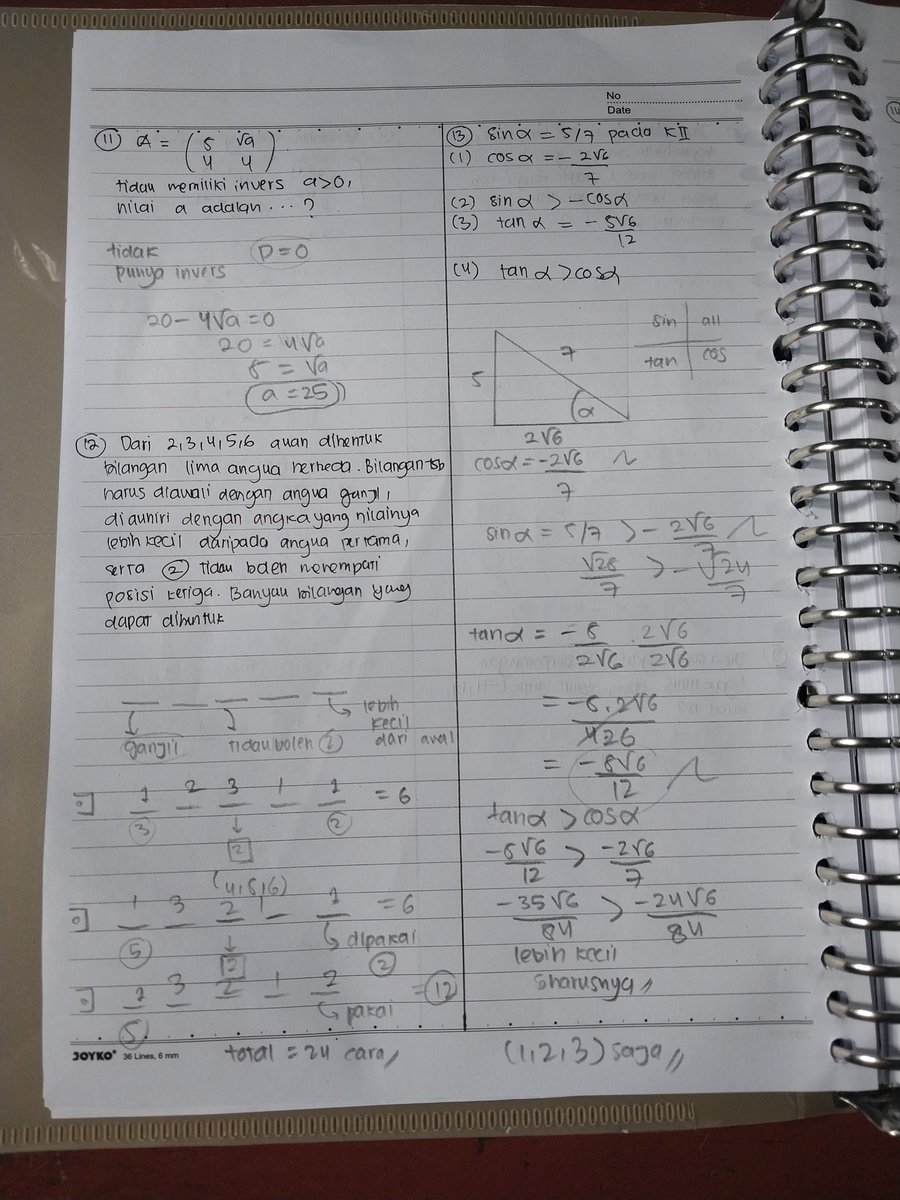 No
Date
(11) A = ( 5 √a
4 4 )
tidak memiliki invers a>0,
nilai a adalah ... ?
tidak
punya invers
D=0
20 - 4√a = 0
20 = 4√a
5 = √a
a = 25
(12) Dari 2,3,4,5,6 akan dibentuk
bilangan lima angka berbeda. Bilangan tsb
harus diawali dengan angka ganjil,
diakhiri dengan angka yang nilainya
lebih kecil daripada angka pertama,
serta (2) tidak boleh menempati
posisi ketiga. Banyak bilangan yang
dapat dibentuk
ganjil
tidak boleh (2)
lebih
kecil
dari awal
1 2 3 1 1 = 6
(3) 2 (2)
(4,5,6)
1 3 2 1 1 = 6
(5) 2 dipakai
(2)
1 3 2 1 2 = (12)
(5) pakai
total = 24 cara //
JOYKO 36 Lines, 6 mm
(13) sin α = 5/7 pada K II
(1) cos α = - 2√6
7
(2) sin α > - cos α
(3) tan α = - 5√6
12
(4) tan α > cos α
sin all
tan cos
5 7 α
2√6
cos α = -2√6
7
sin α = 5/7 > - 2√6
7
√25 > - √24
7 7
tan α = - 5 . 2√6
2√6 2√6
= -5.2√6
426
= -5√6
12
tan α > cos α
-5√6 > -2√6
12 7
-35√6 > -24√6
84 84
lebih kecil
sharusnya //
(1,2,3) saja //